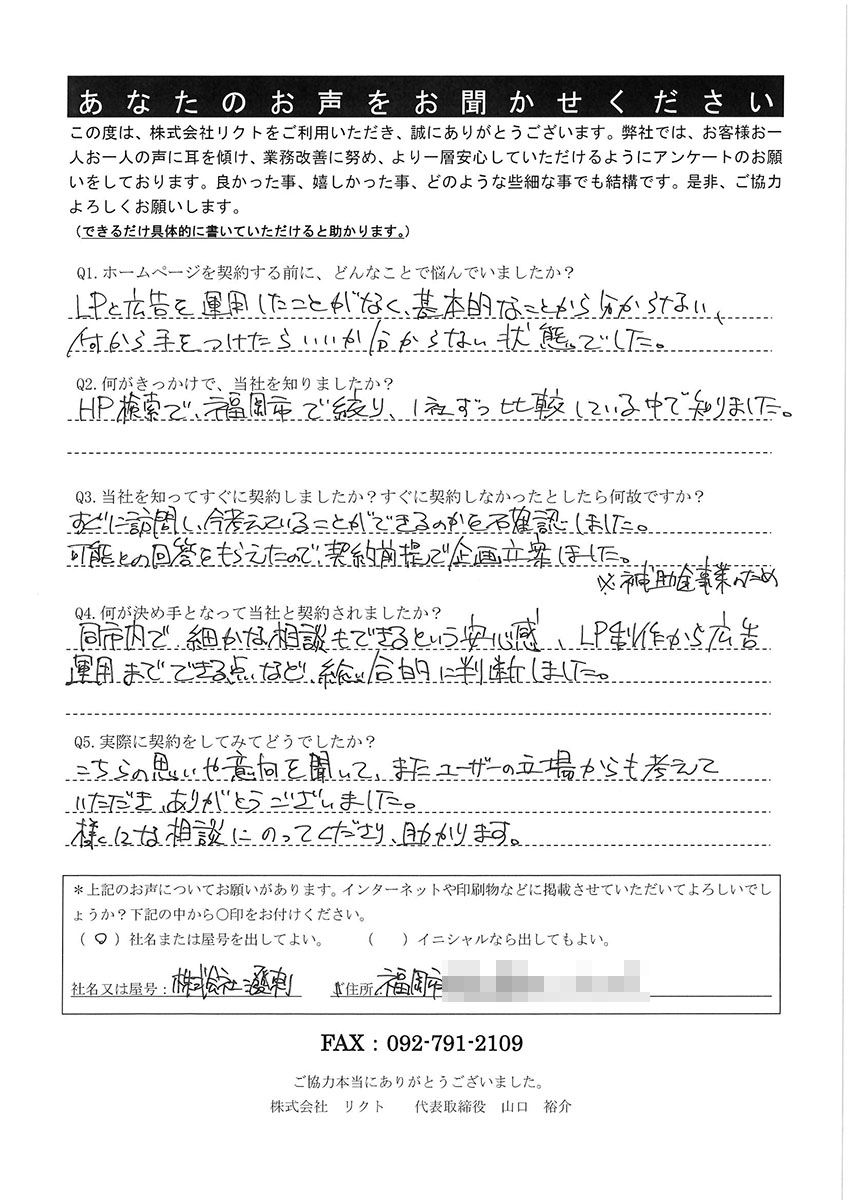 あなたのお声をお聞かせください
この度は、株式会社リクトをご利用いただき、誠にありがとうございます。弊社では、お客様お一
人お一人の声に耳を傾け、業務改善に努め、より一層安心していただけるようにアンケートのお願
いをしております。良かった事、嬉しかった事、どのような些細な事でも結構です。是非、ご協力
よろしくお願いします。
（できるだけ具体的に書いていただけると助かります。）
Q1.ホームページを契約する前に、どんなことで悩んでいましたか？
LPと広告を運用したことがなく、基本的なことから分からない、
何から手をつけたらいいか分からない状態でした。
Q2.何がきっかけで、当社を知りましたか？
HP検索で、福岡市で絞り、1社ずつ比較している中で知りました。
Q3.当社を知ってすぐに契約しましたか？すぐに契約しなかったとしたら何故ですか？
すぐに訪問し、今考えていることができるのかを確認しました。
可能との回答をもらえたので、契約前提で企画立案しました。
※補助金事業のため
Q4.何が決め手となって当社と契約されましたか？
同市内で、細かな相談もできるという安心感、LP制作から広告
運用までできる点など、総合的に判断しました。
Q5.実際に契約をしてみてどうでしたか？
こちらの思いや意向を聞いて、またユーザーの立場からも考えて
いただき、ありがとうございました。
様々な相談にのってくださり、助かります。
＊上記のお声についてお願いがあります。インターネットや印刷物などに掲載させていただいてよろしいでし
ょうか？下記の中から〇印をお付けください。
（ 〇 ）社名または屋号を出してよい。 （ ）イニシャルなら出してもよい。
社名又は屋号：株式会社溌剌 ご住所 福岡市
FAX：092-791-2109
ご協力本当にありがとうございました。
株式会社 リクト 代表取締役 山口 裕介